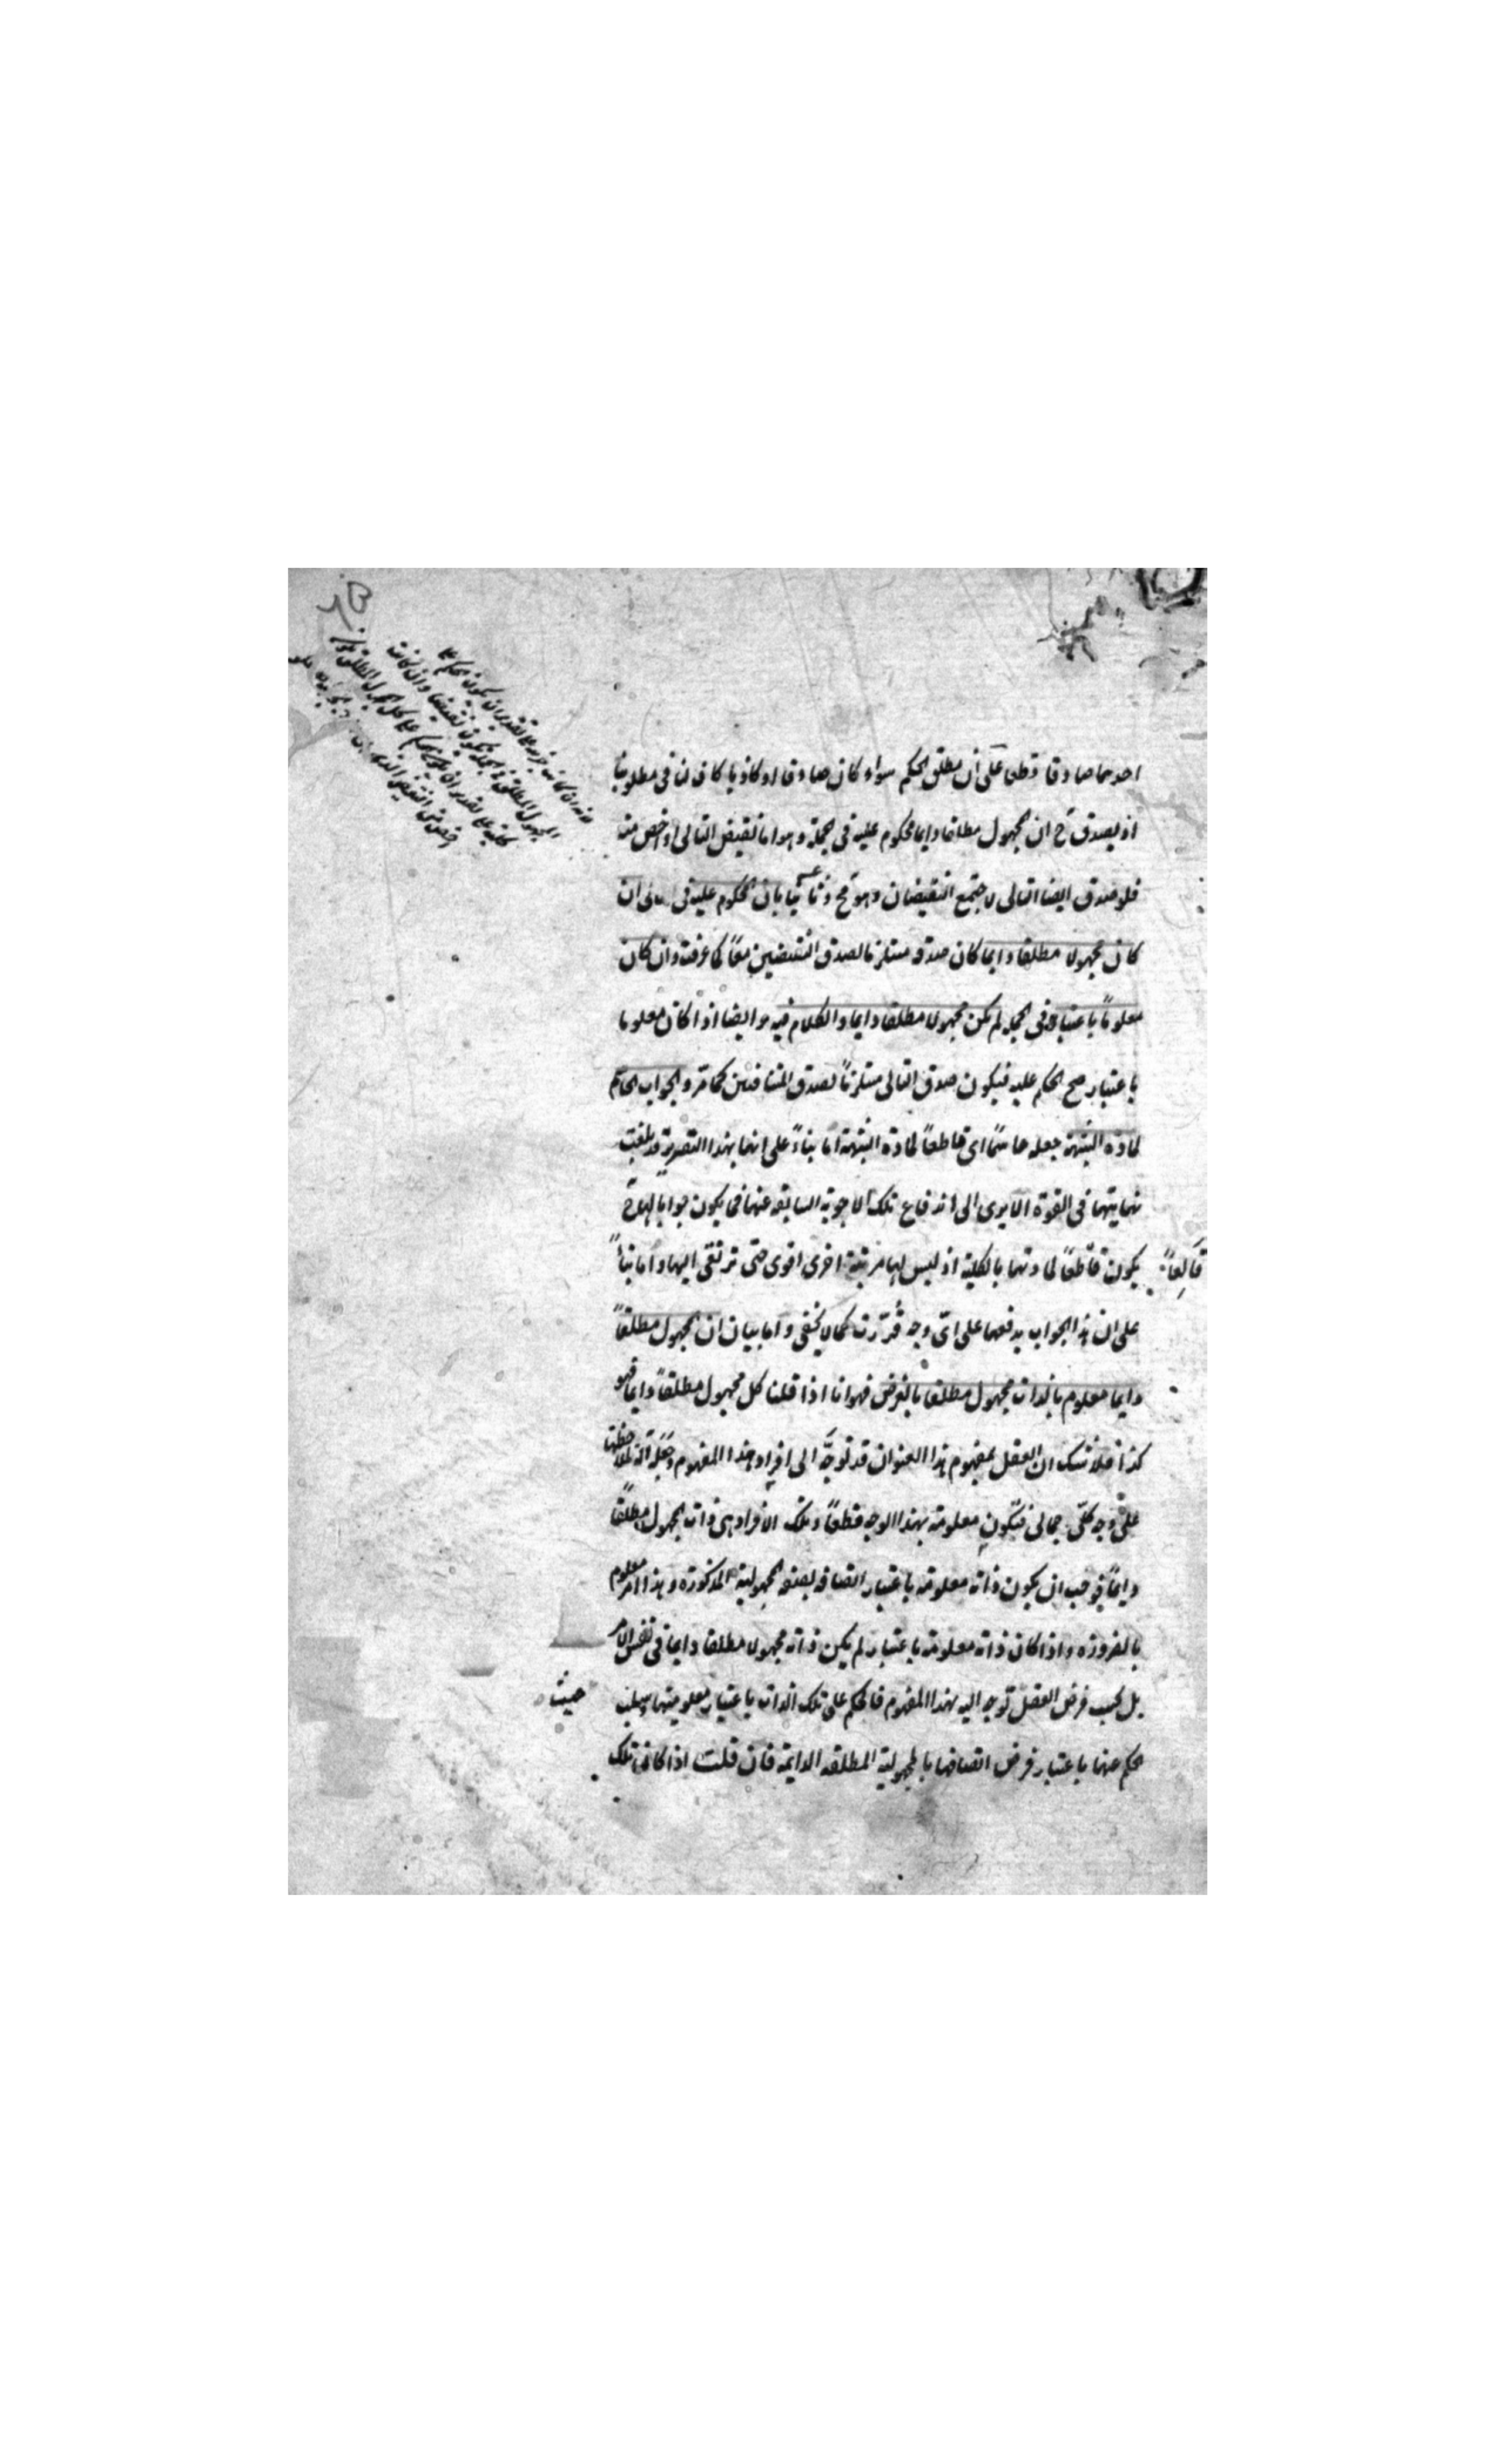 احدهما صادقا قطعا على ان مطلق الحكم سواء كان صادقا او كاذبا كاف لنا في مطلوبنا
اذ يصدق ح ان المجهول مطلقا دايما محكوم عليه في الجملة وهو اما نقيض التالي او اخص منه
فلو صدق ايضا التالي لاجتمع النقيضان وهو مح وثانيا بان المحكوم عليه في ان
كان مجهولا مطلقا دايما كان صدقه مستلزما لصدق النقيضين معًا كما عرفت وان كان
معلومًا باعتبار في الجملة لم يكن مجهولا مطلقا دايما والكلام فيه وايضا اذا كان معلوما
باعتبار صح الحكم عليه فيكون صدق التالي مستلزمًا لصدق المتنافيين كما مر والجواب الحاسم
لمادة الشبهة جعله حاسمًا اي قاطعًا لمادة الشبهة اما بناءً على انها بهذا التقرير قد بلغت
نهايتها في القوة الا يرى الى اندفاع تلك الاجوبة السابقة عنها فما يكون جوابا لها ح
يكون قاطعًا لمادتها بالكلية اذ ليس لها مرتبة اخرى اقوى حتى ترتقي اليها واما بناءً
قالعًا
على ان هذا الجواب يدفعها على اي وجه قُرّرت كما لا يخفى واما بيان ان المجهول مطلقًا
دايما معلوم بالذات مجهول مطلقا بالفرض فهو انا اذا قلنا كل مجهول مطلقًا دايما فهو
كذا فلا شك ان العقل بمفهوم هذا العنوان قد توجّه الى افراد هذا المفهوم وجعله آلة لملاحظتها
على وجه كلّي اجمالي فتكون معلومة بهذا الوجه قطعًا وتلك الافراد هي ذات المجهول مطلقًا
دايمًا فوجب ان يكون ذاته معلومة باعتبار اتصافه بصفة المجهولية المذكورة وهذا امر معلوم
بالضرورة واذا كان ذاته معلومة باعتبار لم يكن ذاته مجهولا مطلقا دايما في نفس الامر
بل بحسب فرض العقل توجه اليه بهذا المفهوم فالحكم على تلك الذات باعتبار معلوميتها وسلب
حيث
الحكم عنها باعتبار فرض اتصافها بالمجهولية المطلقة الدايمة فان قلت اذا كان تلك